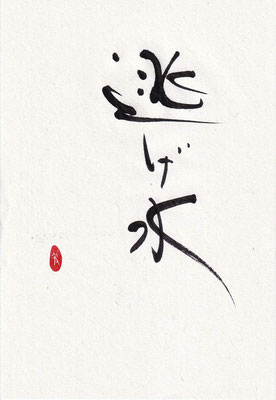 逃げ水